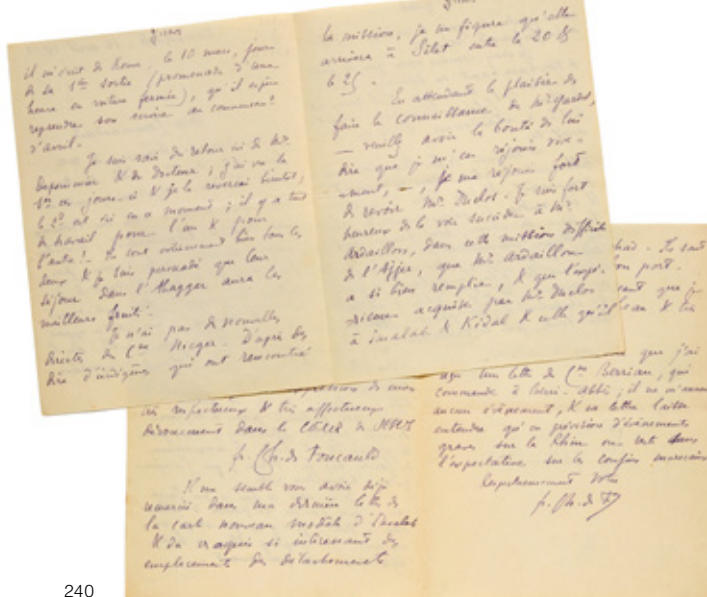 il m'écrit de Rome, le 10 mars, jour
de sa 1ère sortie (promenade d'une
heure en voiture fermée), qu'il espère
reprendre son service au commencemt
d'avril.
Je suis ravi du retour ici de Mr.
& du docteur ; j'ai vu le
1er ces jours-ci & je le reverrai bientôt,
le 2e est ici en ce moment ; il y a tant
de travail pour l'un & pour
l'autre ! Ils sont vraiment bien tous les
deux & je suis persuadé que leur
séjour dans l'Ahaggar aura les
meilleurs fruits.
Je n'ai pas de nouvelles
directes du Cne Nieger. D'après des
dire d'indigènes qui ont rencontré
la mission, je me figure qu'elle
arrivera à Silet entre le 20 &
le 25.
En attendant le plaisir de
faire la connaissance de Mr. Gardel,
— veuillez avoir la bonté de lui
dire que je m'en réjouis vive-
ment, —, je me réjouis fort
de revoir Mr. Duclos. Je suis fort
heureux de le voir succéder à Mr.
Ardaillon, dans cette mission difficile
de l'Ajjer, que Mr. Ardaillon
a si bien remplie, & que l'expé-
rience acquise par Mr. Duclos
à InSalah & Kidal & celle qu'il
expression de mon
très respectueux & très affectueux
dévouement dans le CŒUR de JESUS
fr. Ch. de Foucauld
Il me semble vous avoir déjà
remercié dans ma dernière lettre de
la carte nouveau modèle d'Insalah
& du croquis si intéressant des
emplacements des détachements
Ils sont
bon port.
que j'ai
reçu une lettre de Cne Berriau, qui
commande à Béni-Abbès ; il ne m'annonce
aucun évènement, & sa lettre laisse
entendre qu'en prévision d'évènements
graves sur le Rhin on reste dans
l'expectative sur les confins marocains
Respectueusement vôtre
fr. Ch. de F
240